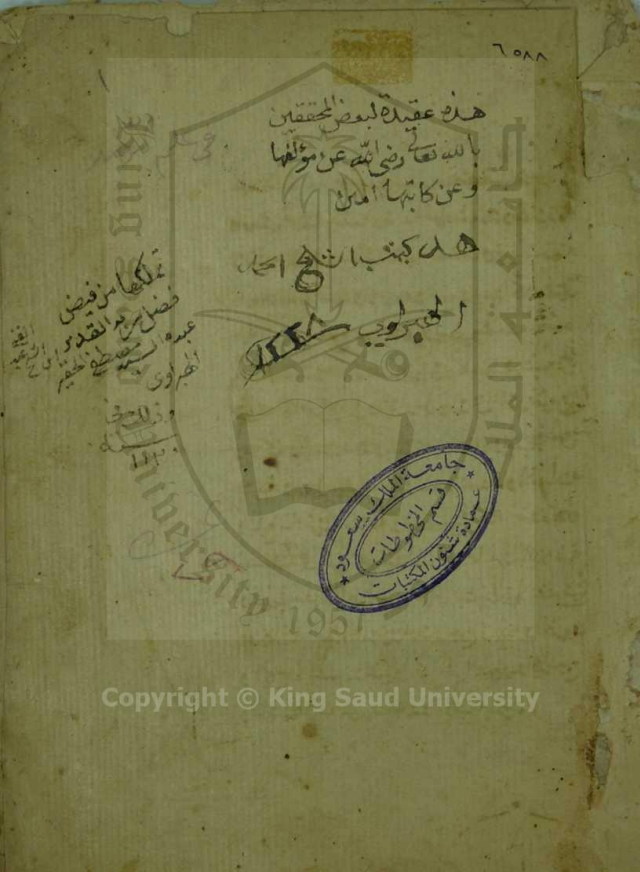 ٦٥٨٨
١
هذه عقيدة لبعض المحققين
بالله تعالى رضي الله عن مؤلفها
وعن كاتبها امين
الهبراوي ١٢٢٨
تملكها من فيض
فضل ربه القدير
عبده السيد مصطفى الحقير
الهبراوي
جامعة الملك سعود
قسم المخطوطات
عمادة شئون المكتبات
King Saud University
1957
جامعة الملك سعود
Copyright © King Saud University